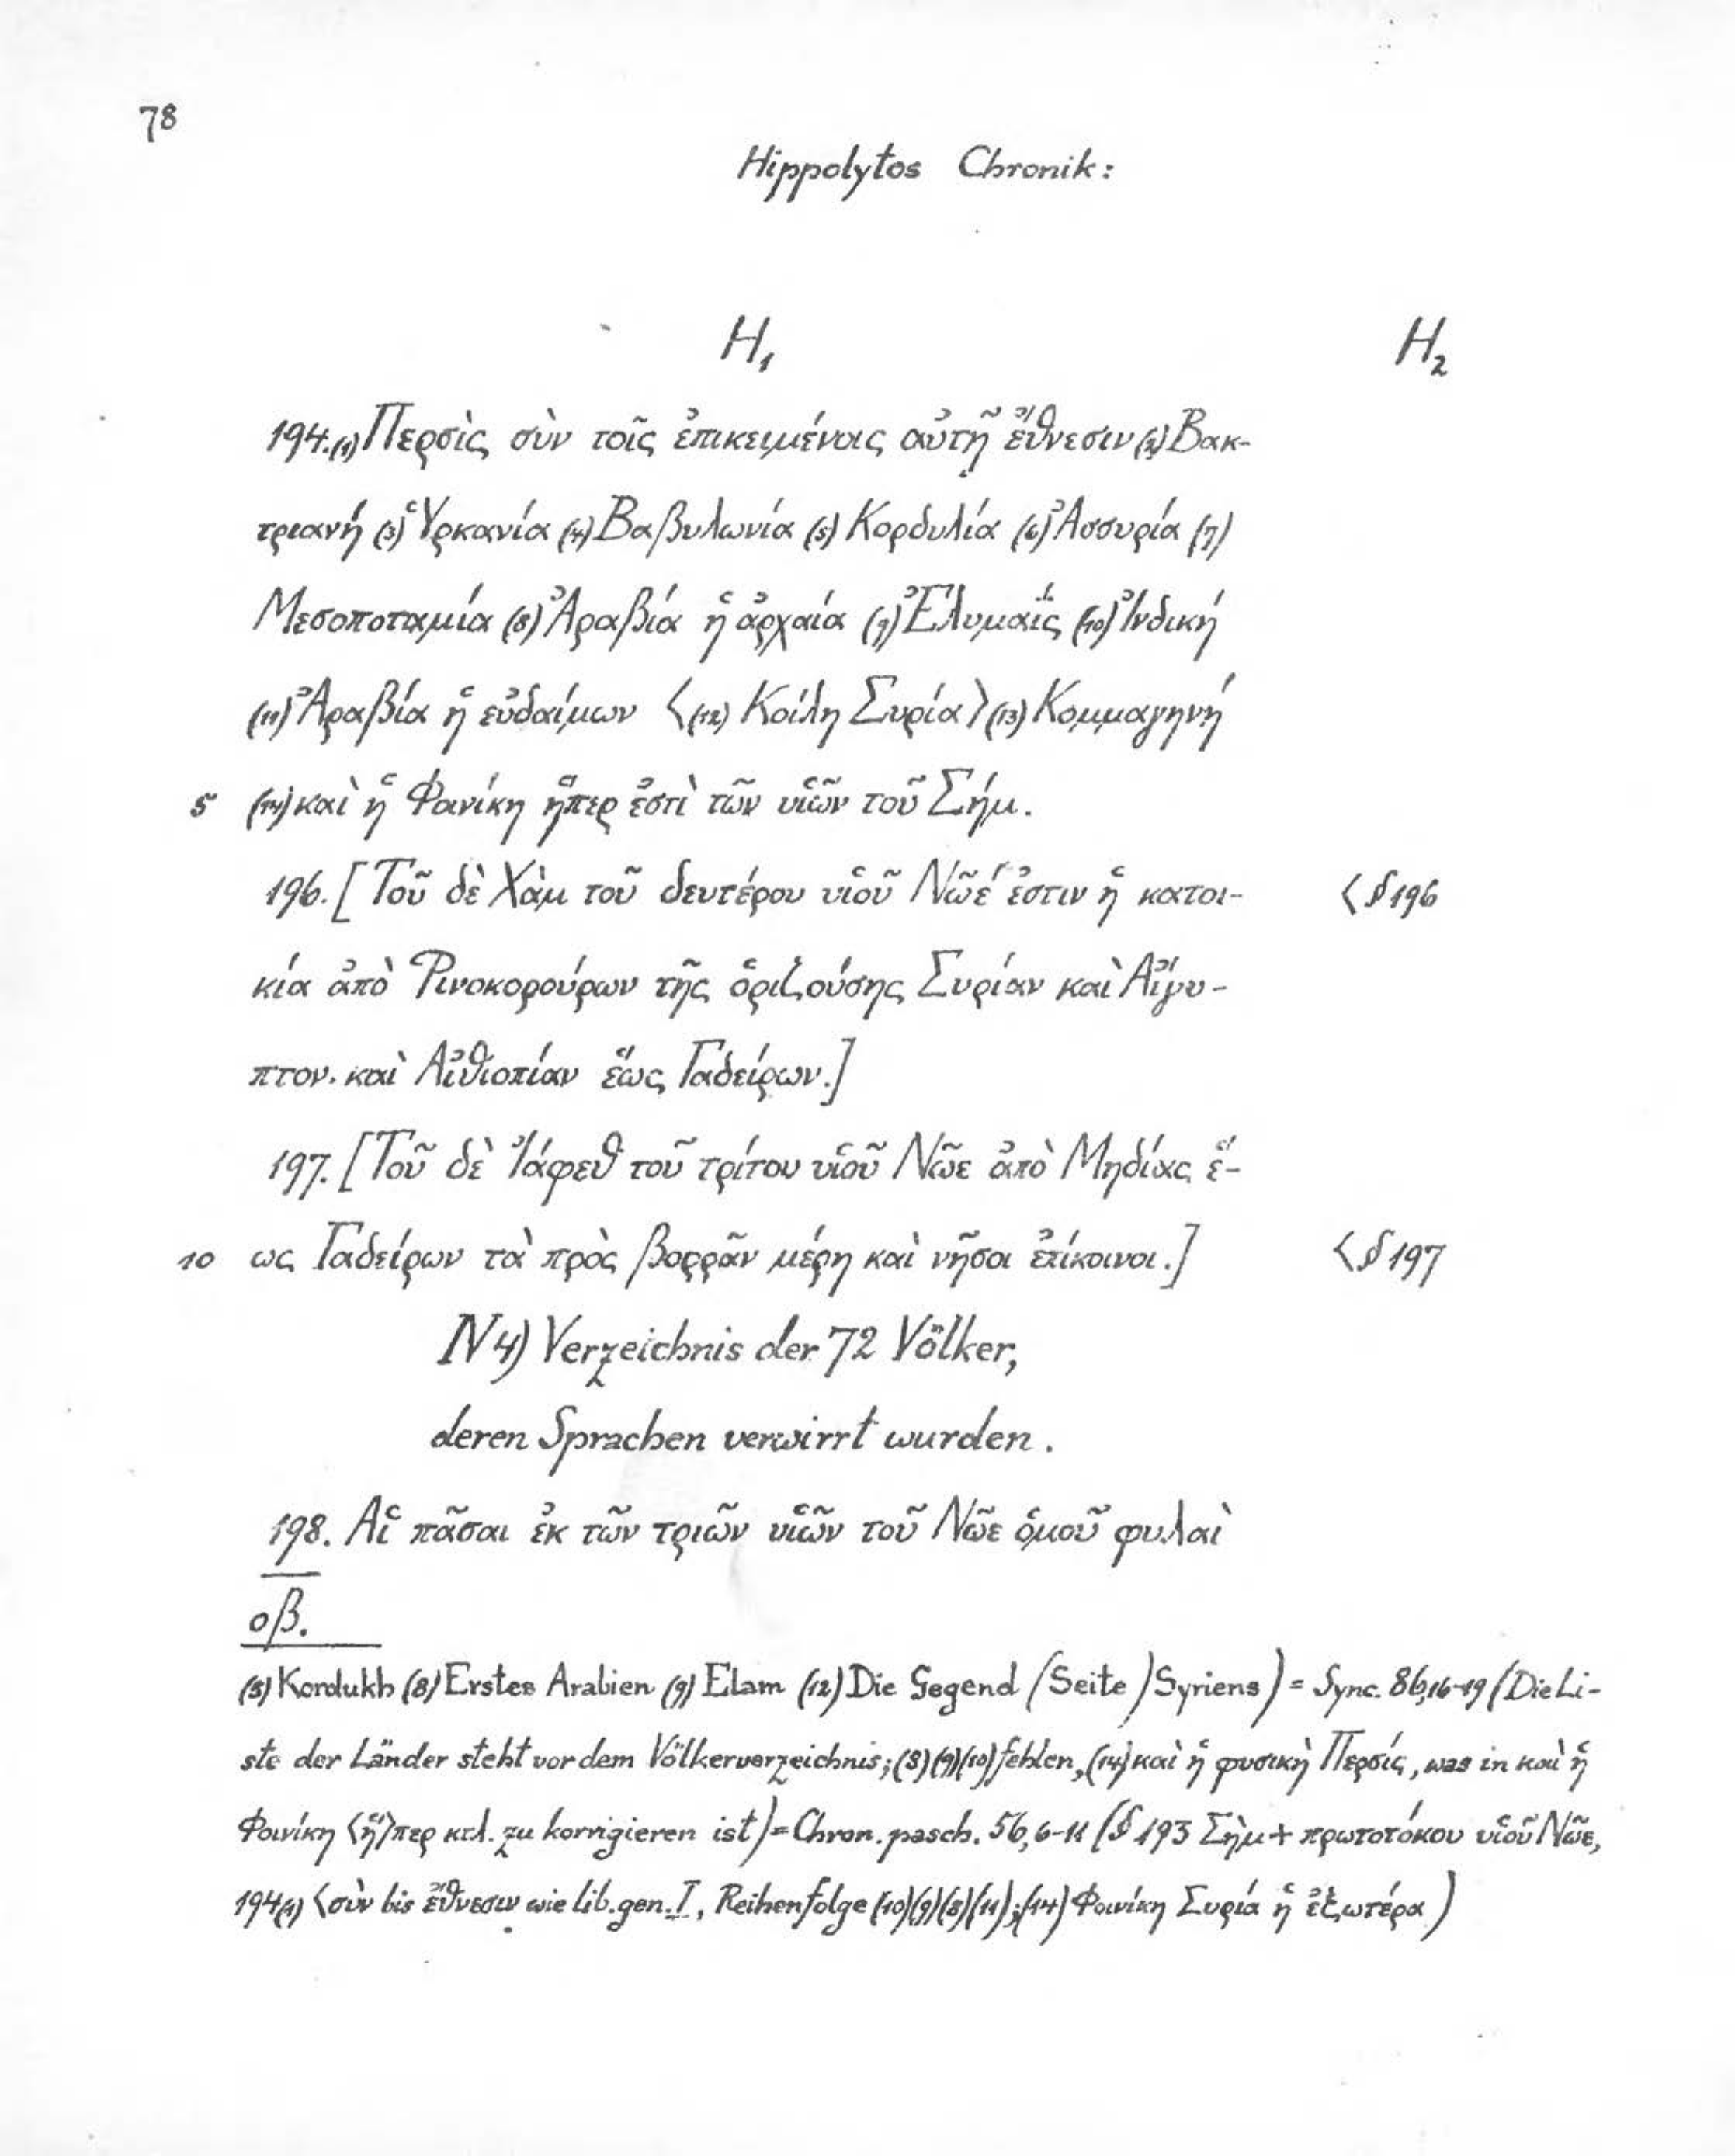 78
Hippolytos Chronik:
H₁ H₂
194. (1) Περσὶς σὺν τοῖς ἐπικειμένοις αὐτῇ ἔθνεσιν (2) Βακ-
τριανή (3) Ὑρκανία (4) Βαβυλωνία (5) Κορδυλία (6) Ἀσσυρία (7)
Μεσοποταμία (8) Ἀραβία ἡ ἀρχαία (9) Ἐλυμαΐς (10) Ἰνδική
(11) Ἀραβία ἡ εὐδαίμων 〈(12) Κοίλη Συρία〉 (13) Κομμαγηνή
5 (14) καὶ ἡ Φοινίκη ἥπερ ἐστὶ τῶν υἱῶν τοῦ Σήμ.
196. [Τοῦ δὲ Χὰμ τοῦ δευτέρου υἱοῦ Νῶέ ἐστιν ἡ κατοι- 〈 § 196
κία ἀπὸ Ῥινοκορούρων τῆς ὁριζούσης Συρίαν καὶ Αἴγυ-
πτον. καὶ Αἰθιοπίαν ἕως Γαδείρων.]
197. [Τοῦ δὲ Ἰάφεθ τοῦ τρίτου υἱοῦ Νῶε ἀπὸ Μηδίας ἕ-
10 ως Γαδείρων τὰ πρὸς βορρᾶν μέρη καὶ νῆσοι ἐπίκοινοι.] 〈 § 197
IV 4) Verzeichnis der 72 Völker,
deren Sprachen verwirrt wurden.
198. Αἱ πᾶσαι ἐκ τῶν τριῶν υἱῶν τοῦ Νῶε ὁμοῦ φυλαὶ
οβ.
(5) Kordukh (8) Erstes Arabien (9) Elam (12) Die Gegend (Seite) Syriens) = Sync. 86,16-19 (Die Li-
ste der Länder steht vor dem Völkerverzeichnis; (8)(9)(10) fehlen, (14) καὶ ἡ φυσικὴ Περσίς, was in καὶ ἡ
Φοινίκη 〈ἥ〉περ κτλ. zu korrigieren ist) = Chron. pasch. 56,6-11 (§ 193 Σὴμ + πρωτοτόκου υἱοῦ Νῶε,
194 (1) 〈 σὺν bis ἔθνεσιν wie lib. gen. I, Reihenfolge (10)(9)(8)(11); (14) Φοινίκη Συρία ἡ ἐξωτέρα)